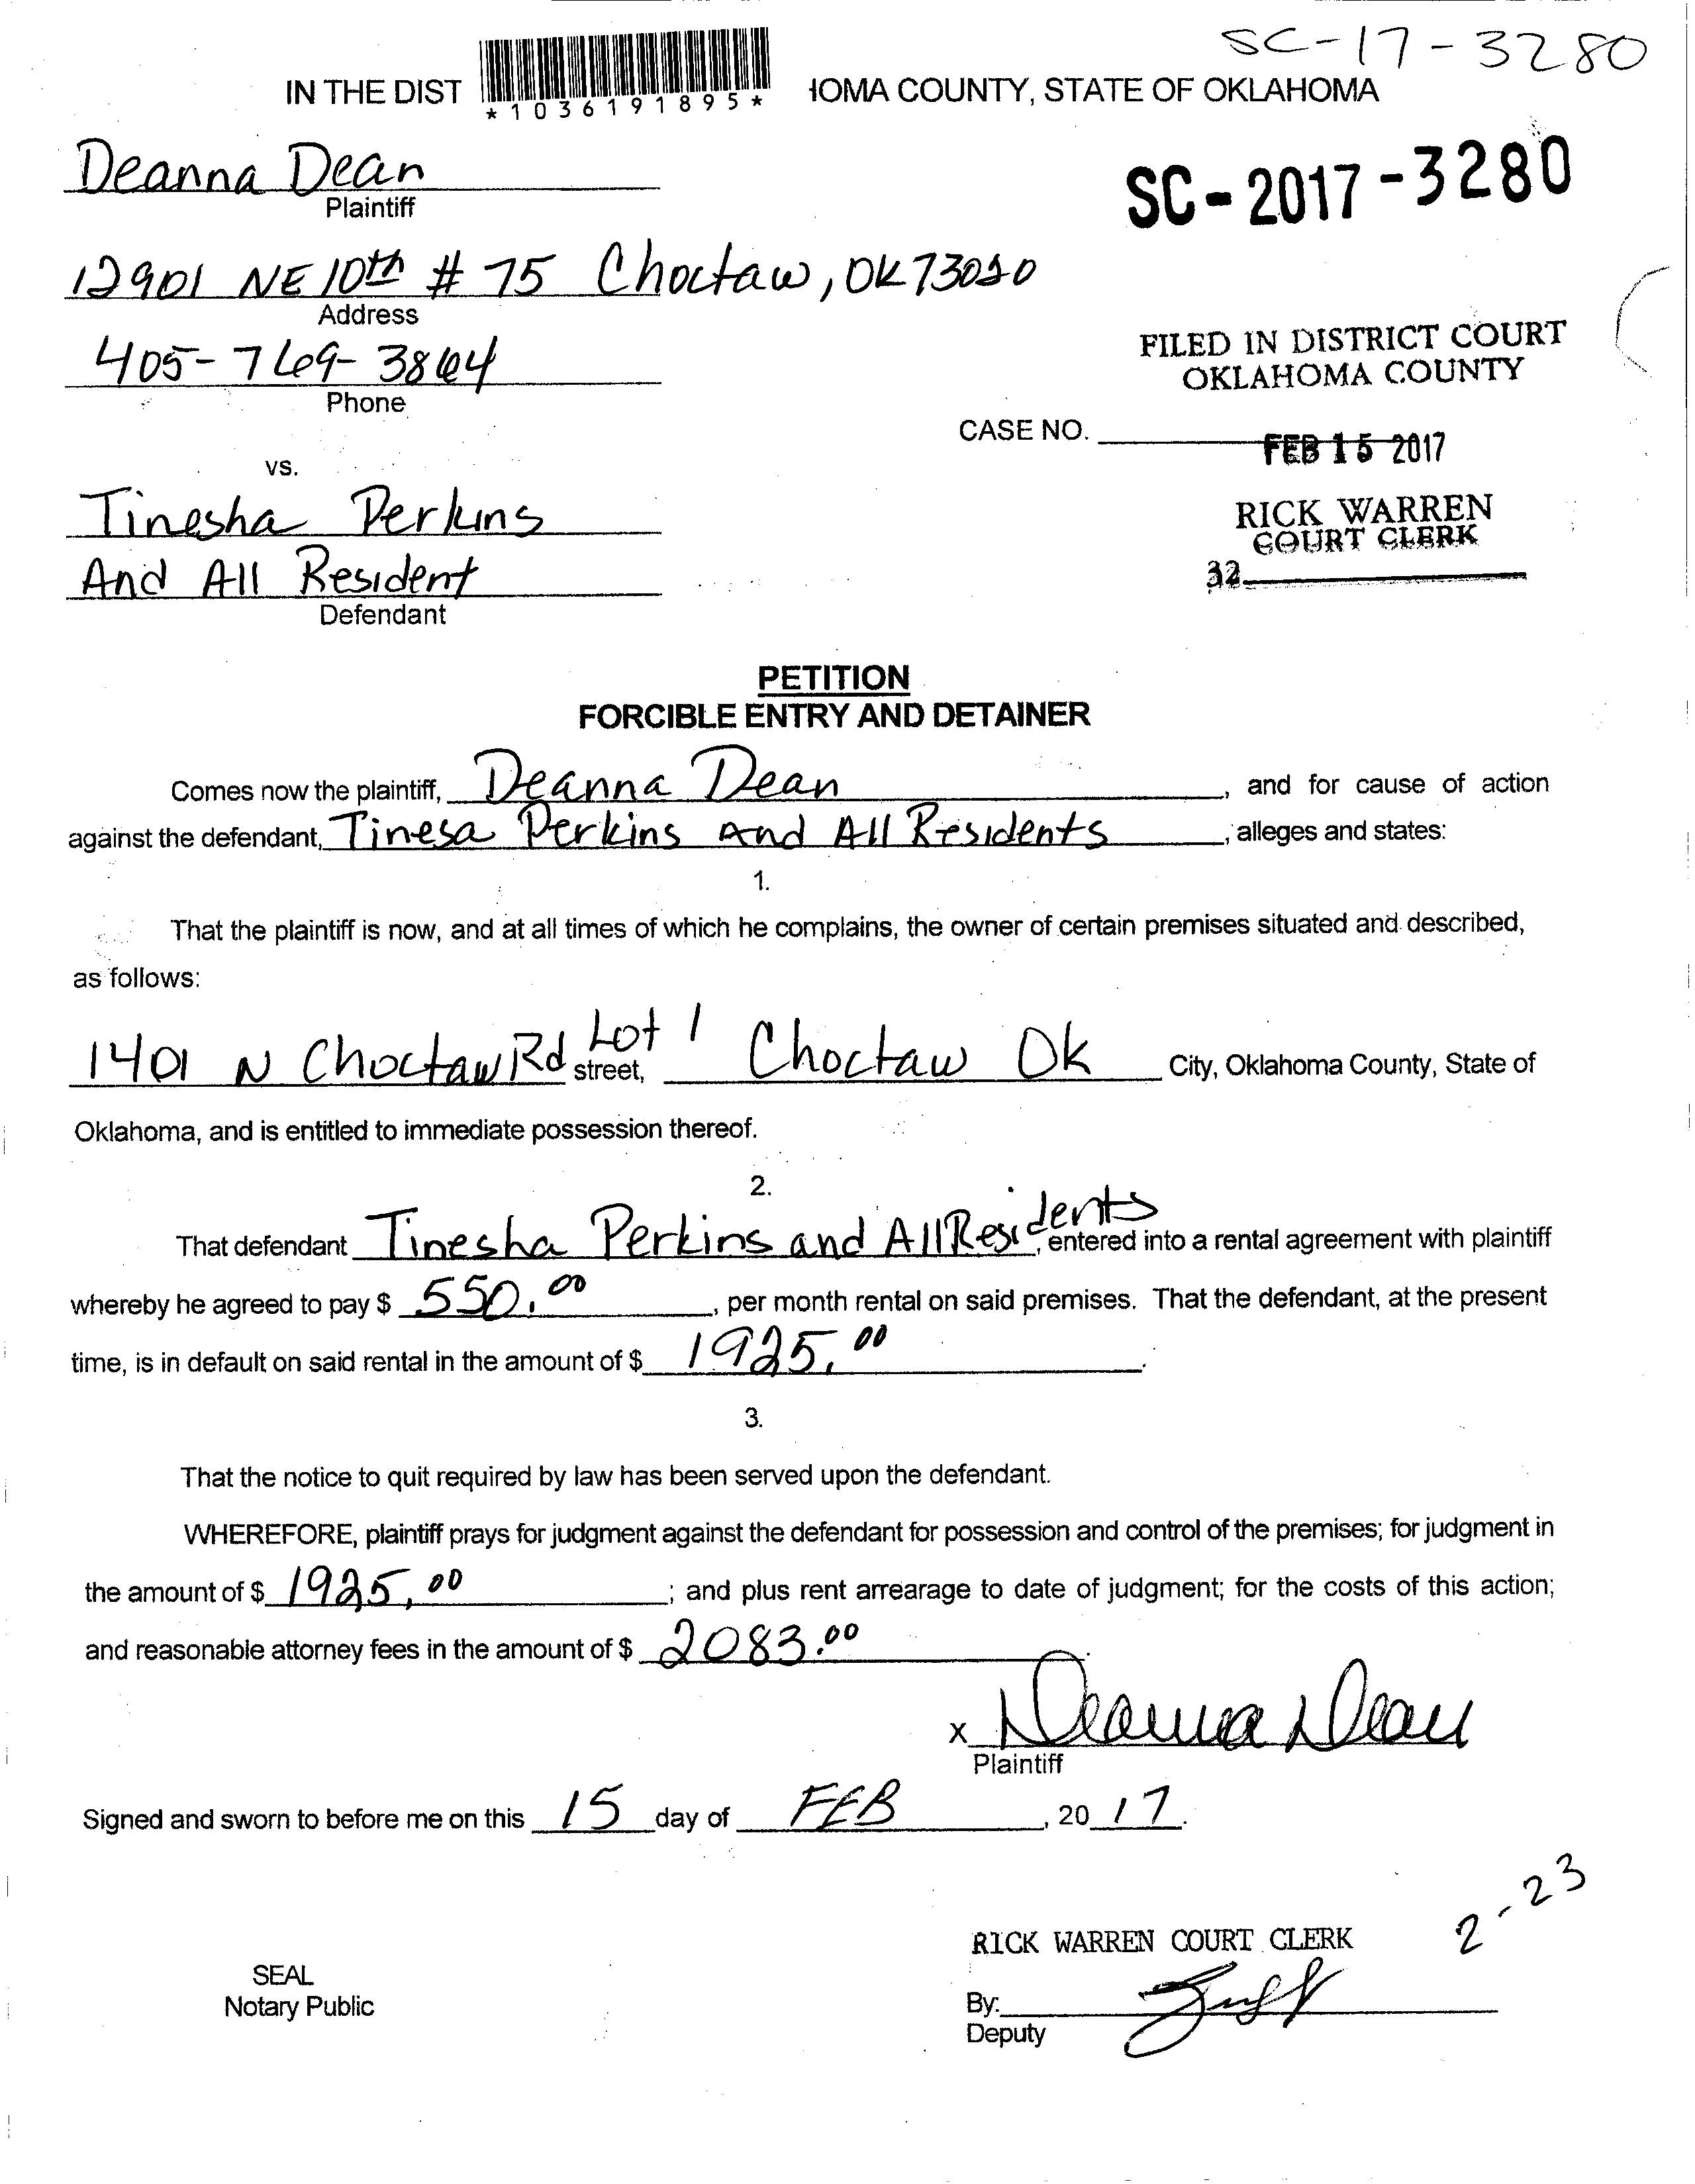 SC-17-3280
IN THE DIST
*1036191895*
HOMA COUNTY, STATE OF OKLAHOMA
Deanna Dean
Plaintiff
SC-2017-3280
12901 NE 10th # 75 Choctaw, OK 73020
Address
405-769-3864
Phone
FILED IN DISTRICT COURT
OKLAHOMA COUNTY
CASE NO.
FEB 15 2017
vs.
RICK WARREN
COURT CLERK
32
Tinesha Perkins
And All Resident
Defendant
PETITION
FORCIBLE ENTRY AND DETAINER
Comes now the plaintiff, Deanna Dean, and for cause of action
against the defendant, Tinesa Perkins And All Residents, alleges and states:
1.
That the plaintiff is now, and at all times of which he complains, the owner of certain premises situated and described,
as follows:
1401 N Choctaw Rd Lot 1 street, Choctaw Ok City, Oklahoma County, State of
Oklahoma, and is entitled to immediate possession thereof.
2.
That defendant Tinesha Perkins and All Residents, entered into a rental agreement with plaintiff
whereby he agreed to pay $ 550.00, per month rental on said premises. That the defendant, at the present
time, is in default on said rental in the amount of $ 1925.00.
3.
That the notice to quit required by law has been served upon the defendant.
WHEREFORE, plaintiff prays for judgment against the defendant for possession and control of the premises; for judgment in
the amount of $ 1925.00; and plus rent arrearage to date of judgment; for the costs of this action;
and reasonable attorney fees in the amount of $ 2083.00.
x Deanna Dean
Plaintiff
Signed and sworn to before me on this 15 day of FEB, 20 17.
2-23
RICK WARREN COURT CLERK
SEAL
Notary Public
By:
Deputy